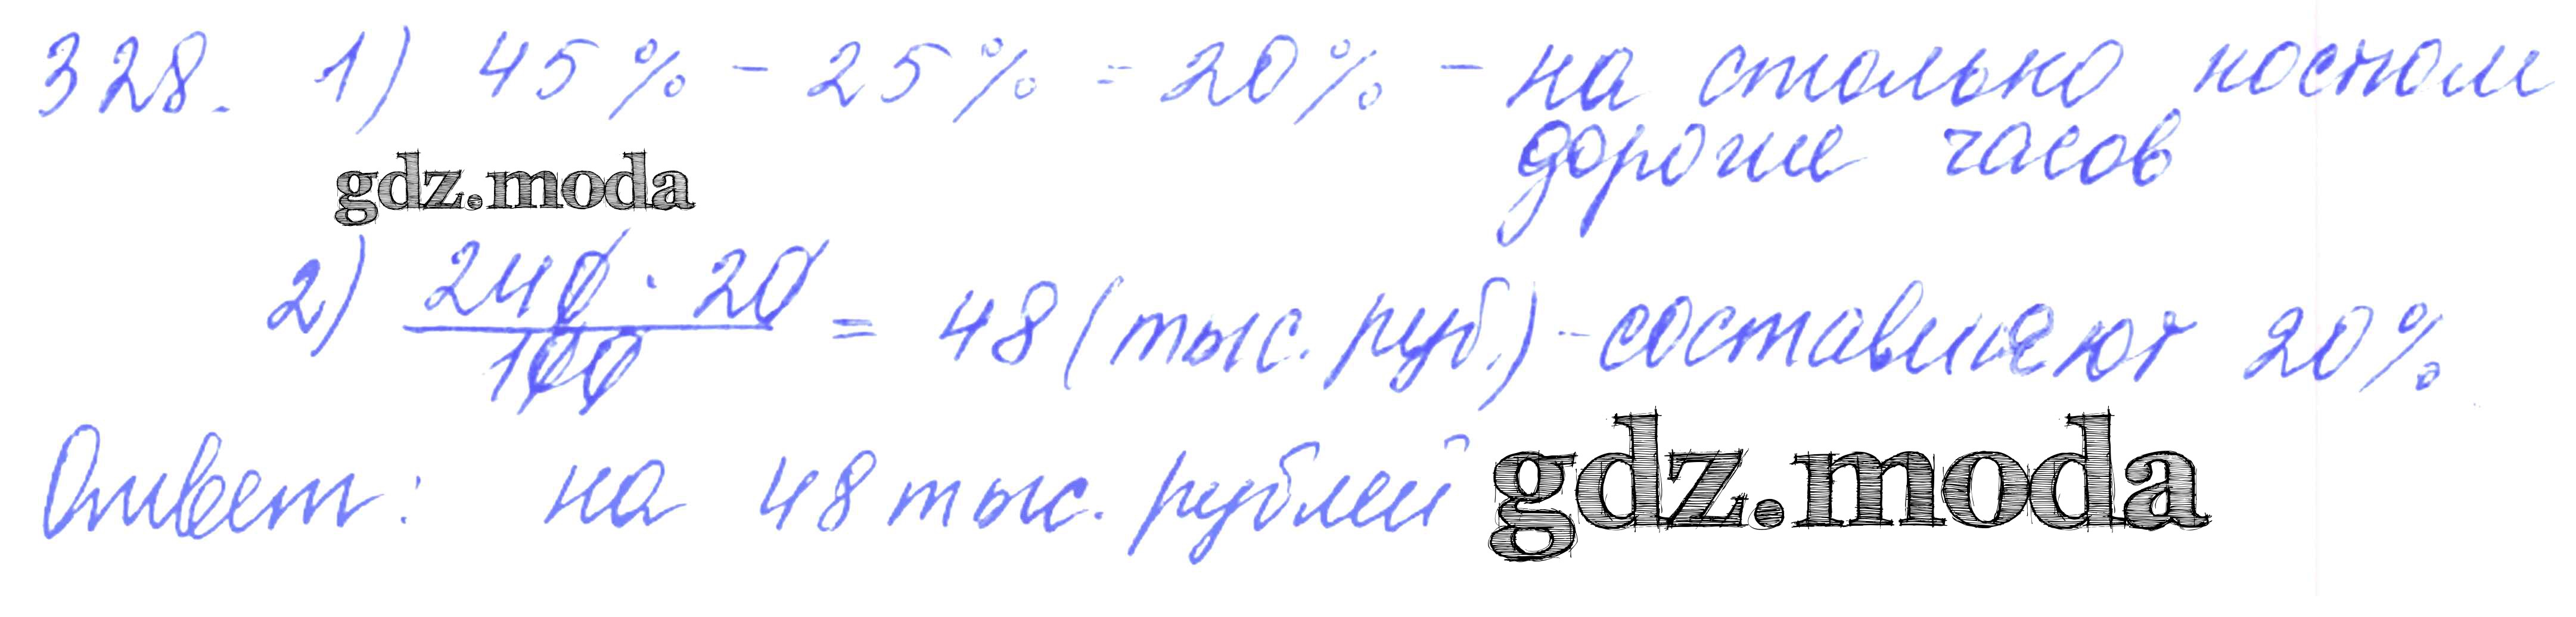 328. 1) 45% - 25% = 20% - на столько костюм
дороже часов
gdz.moda
2) 240 · 20 / 100 = 48 (тыс. руб.) - составляют 20%
Ответ: на 48 тыс. рублей
gdz.moda